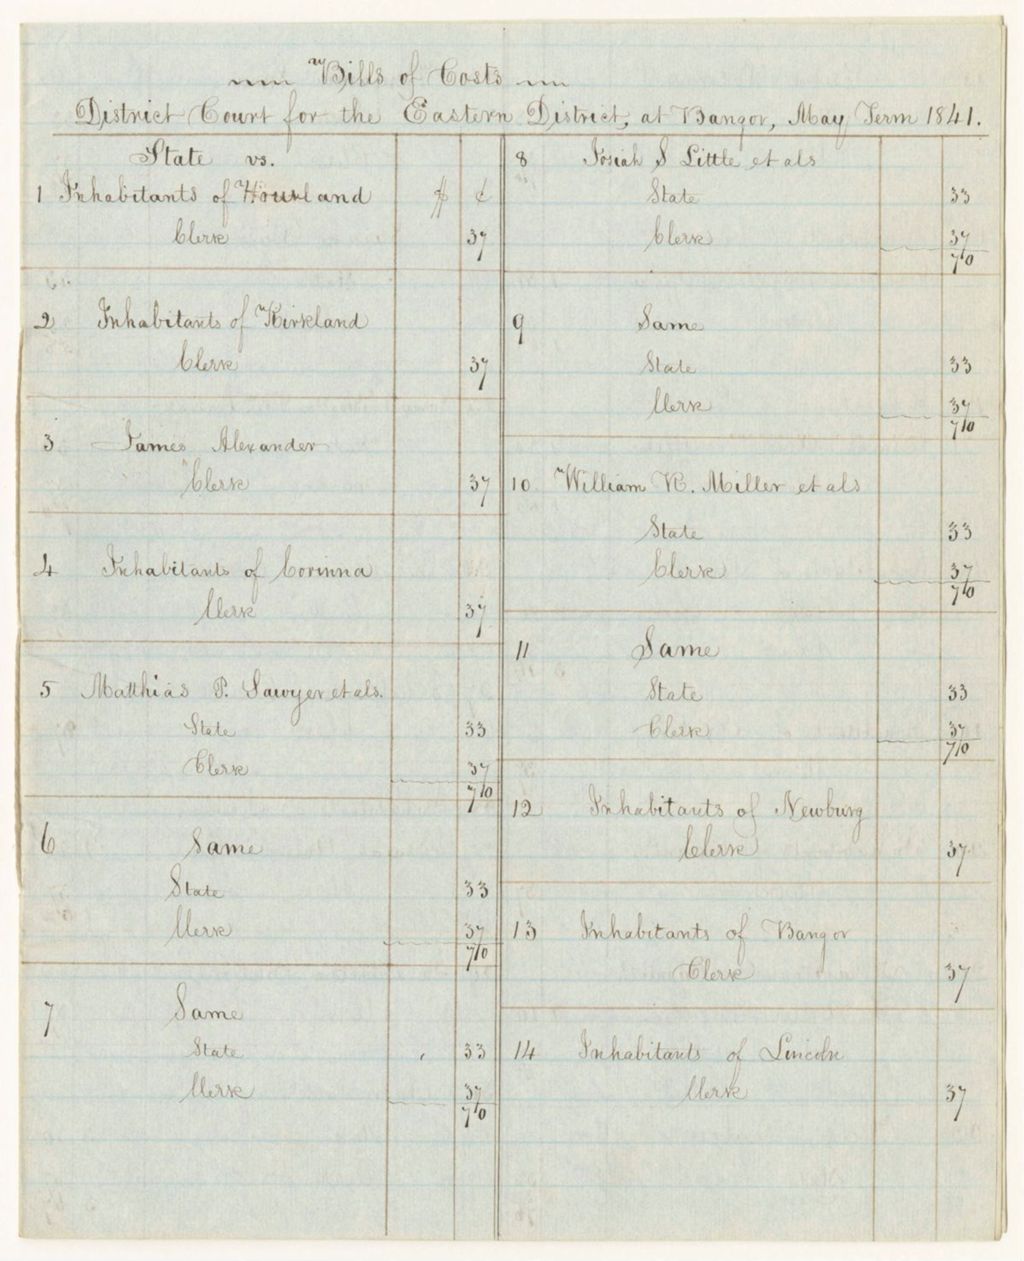 Bills of Costs
District Court for the Eastern District, at Bangor, May Term 1841.
State vs.
1 Inhabitants of Howland $ ¢
Clerk 37
2 Inhabitants of Kirkland
Clerk 37
3 James Alexander
Clerk 37
4 Inhabitants of Corinna
Clerk 37
5 Matthias P. Sawyer et als.
State 33
Clerk 37
70
6 Same
State 33
Clerk 37
70
7 Same
State 33
Clerk 37
70
8 Josiah S Little et als
State 33
Clerk 37
70
9 Same
State 33
Clerk 37
70
10 William R. Miller et als
State 33
Clerk 37
70
11 Same
State 33
Clerk 37
70
12 Inhabitants of Newburg
Clerk 37
13 Inhabitants of Bangor
Clerk 37
14 Inhabitants of Lincoln
Clerk 37